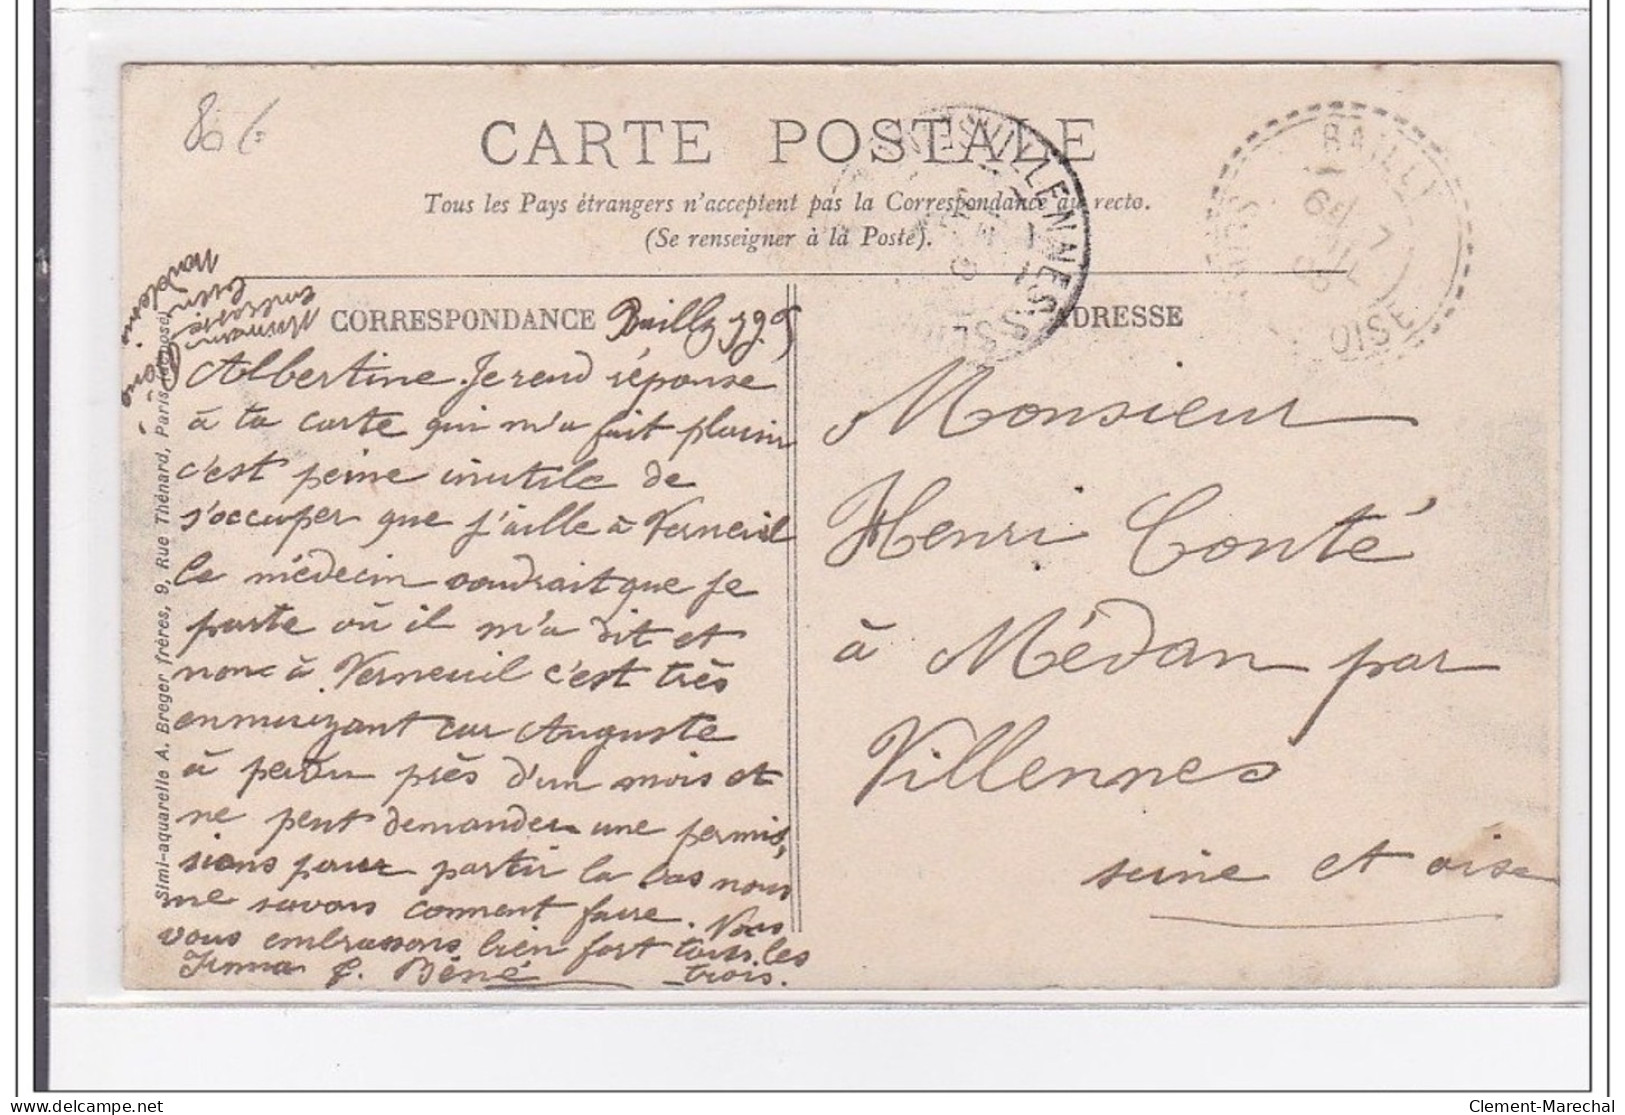 80 €
CARTE POSTALE
Tous les Pays étrangers n'acceptent pas la Correspondance au recto.
(Se renseigner à la Poste).
CORRESPONDANCE
Bailly
ADRESSE
VILLENNES
BAILLY
OISE
Albertine. Je rend réponse
à ta carte qui m'a fait plaisir
c'est peine inutile de
s'occuper que j'aille à Verneuil
le médecin voudrait que je
parte où il m'a dit et
non à Verneuil c'est très
ennuyant car Auguste
à perdu près d'un mois et
ne peut demander une permis,
sions pour partir la bas nous
ne savons comment faire. Nous
vous embrassons bien fort tous les
trois.
Irma P. Béné
Maman
embrasse
bien
Madeleine
Monsieur
Henri Conté
à Médan par
Villennes
seine et oise
Simi-aquarelle A. Breger frères, 9, Rue Thénard, Paris (déposé)
Clement-Marechal